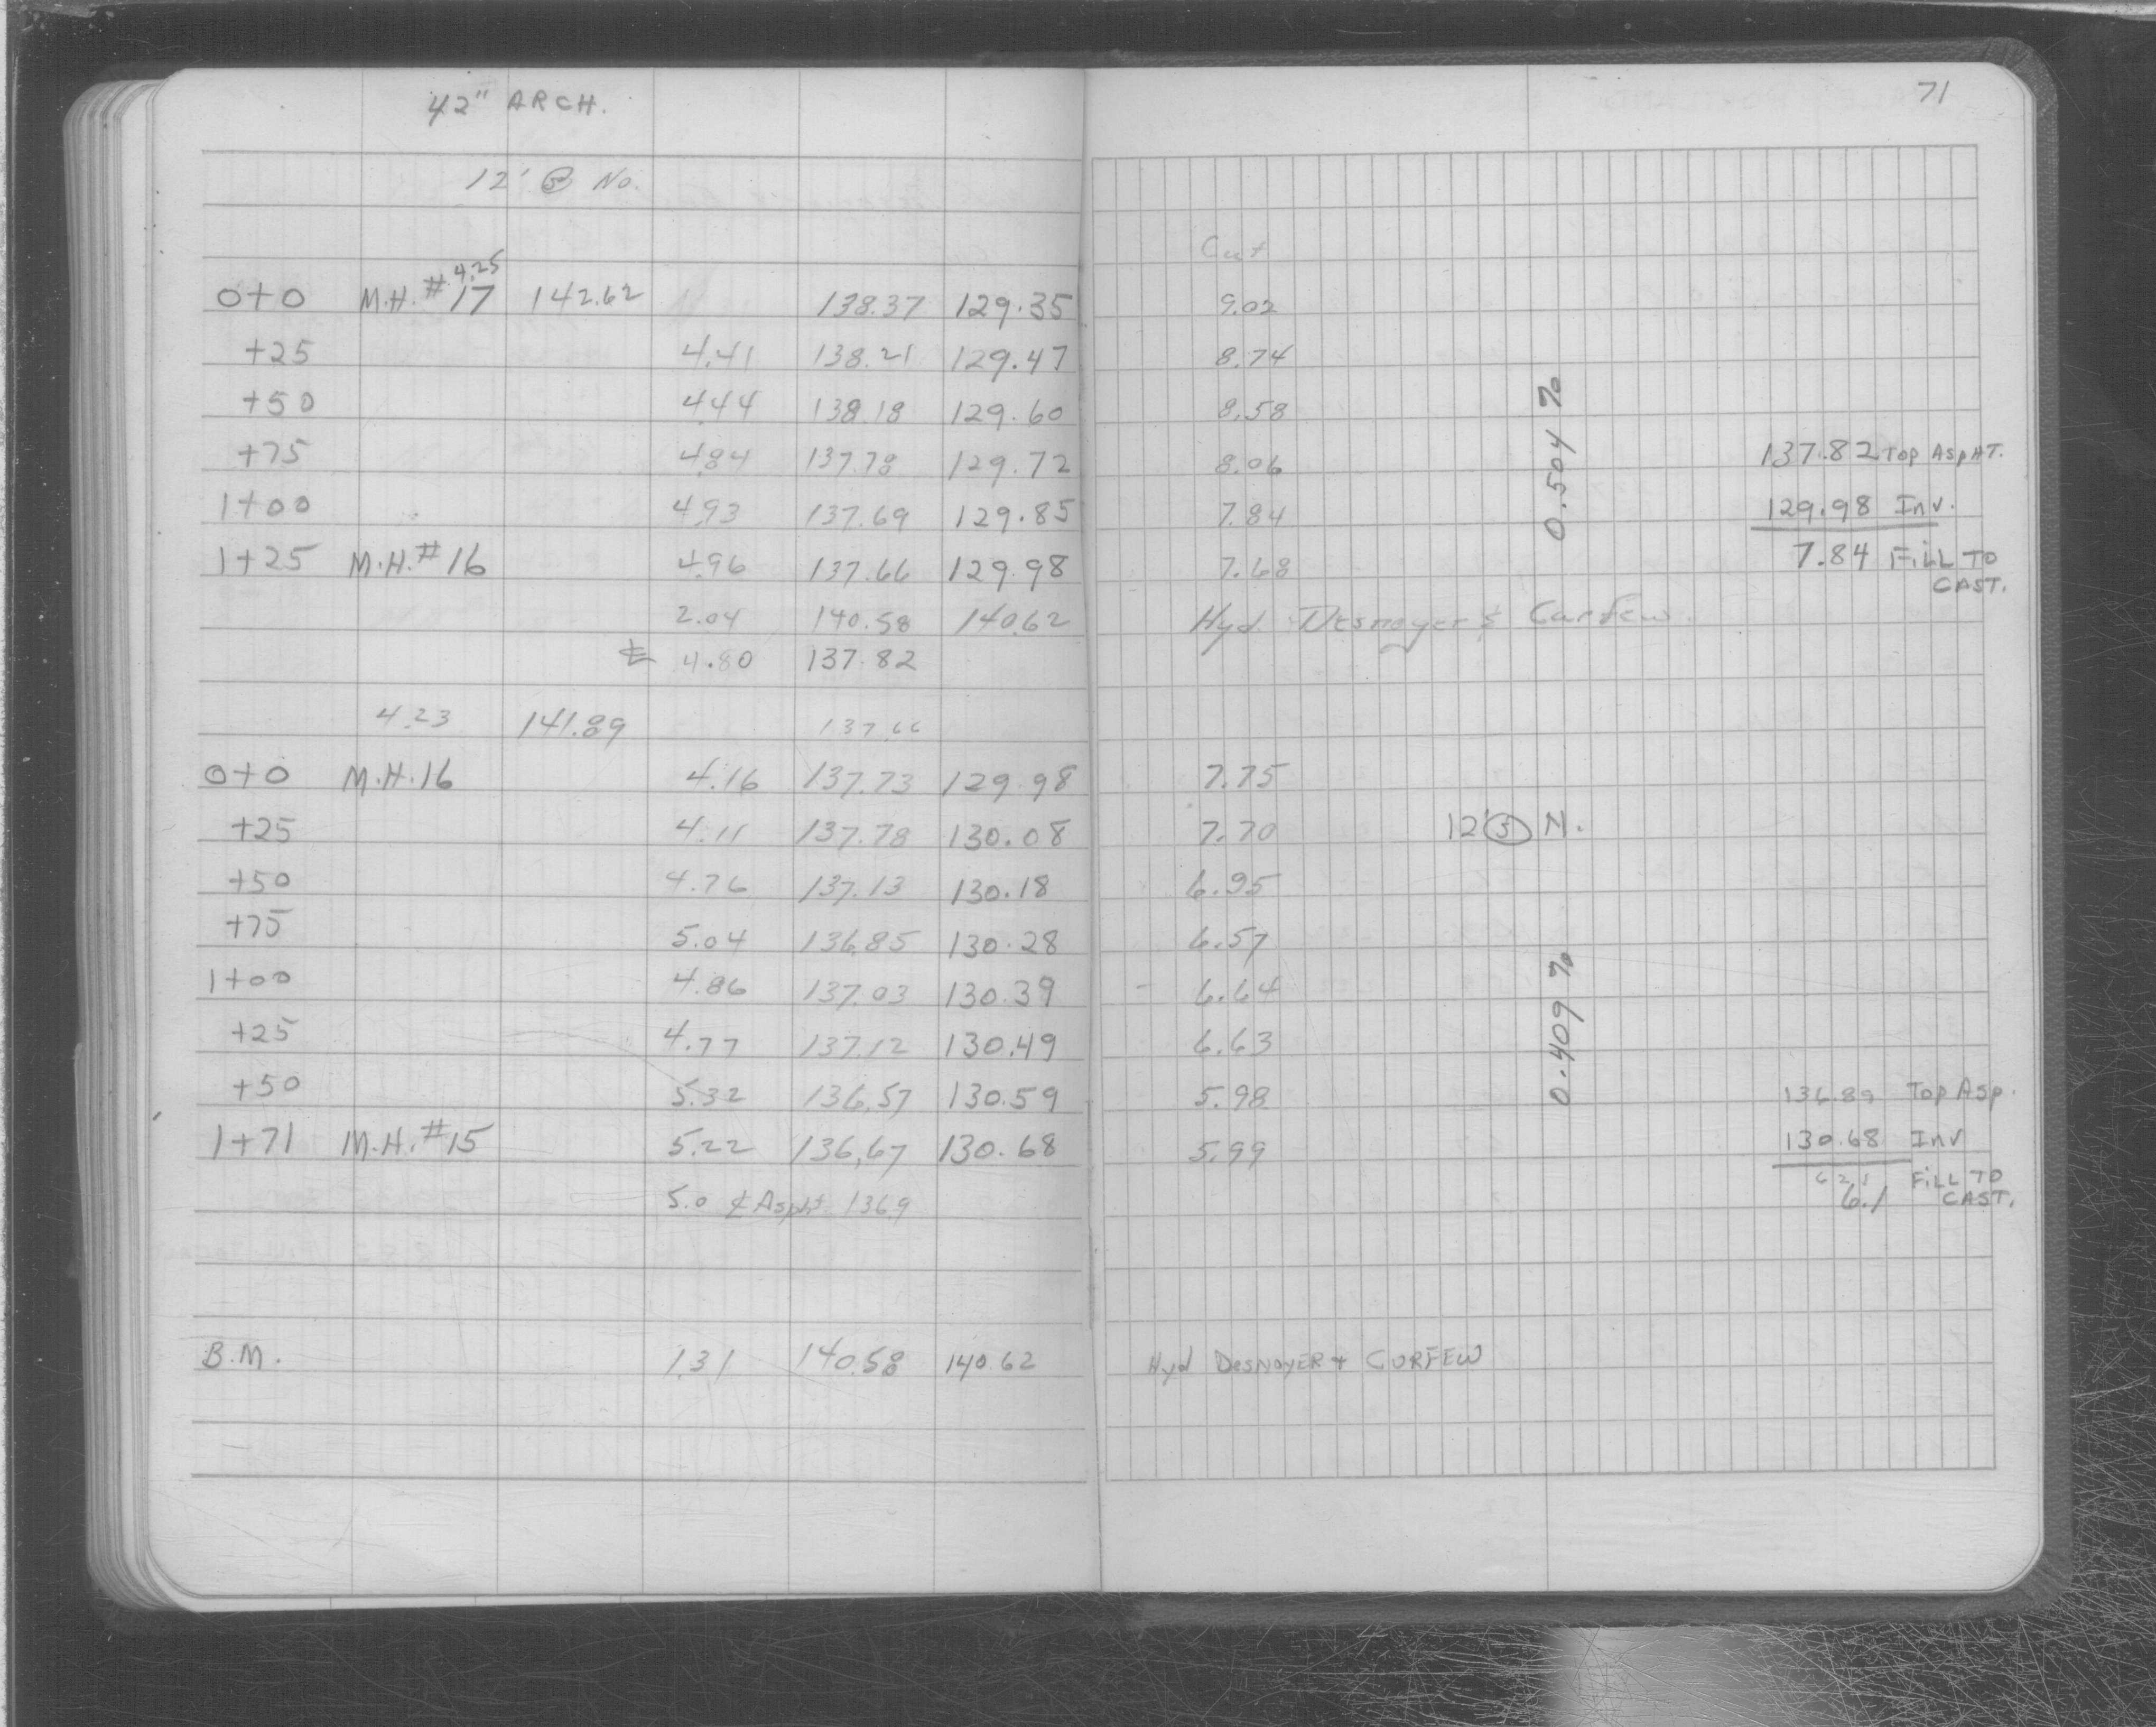 42" ARCH.
71
12' No.
Cut
4.25
0+0 M.H. #17 142.62 138.37 129.35 9.02
+25 4.41 138.21 129.47 8.74
+50 4.44 138.18 129.60 8.58
+75 4.84 137.78 129.72 8.06
1+00 4.93 137.69 129.85 7.84
1+25 M.H. #16 4.96 137.66 129.98 7.68
0.504 %
137.82 TOP ASPHT.
129.98 Inv.
7.84 FILL TO
CAST.
2.04 140.58 140.62 Hyd. Desnoyer & Curfew.
℄ 4.80 137.82
4.23 141.89 137.66
0+0 M.H. 16 4.16 137.73 129.98 7.75
+25 4.11 137.78 130.08 7.70 12' N.
+50 4.76 137.13 130.18 6.95
+75 5.04 136.85 130.28 6.57
1+00 4.86 137.03 130.39 6.64
+25 4.77 137.12 130.49 6.63
+50 5.32 136.57 130.59 5.98
1+71 M.H. #15 5.22 136.67 130.68 5.99
0.409 %
136.89 TOP Asp.
130.68 Inv
6.21 FILL TO
6.1 CAST.
5.0 ℄ Aspht. 136.9
B.M. 1.31 140.58 140.62 Hyd DESNOYER + CURFEW